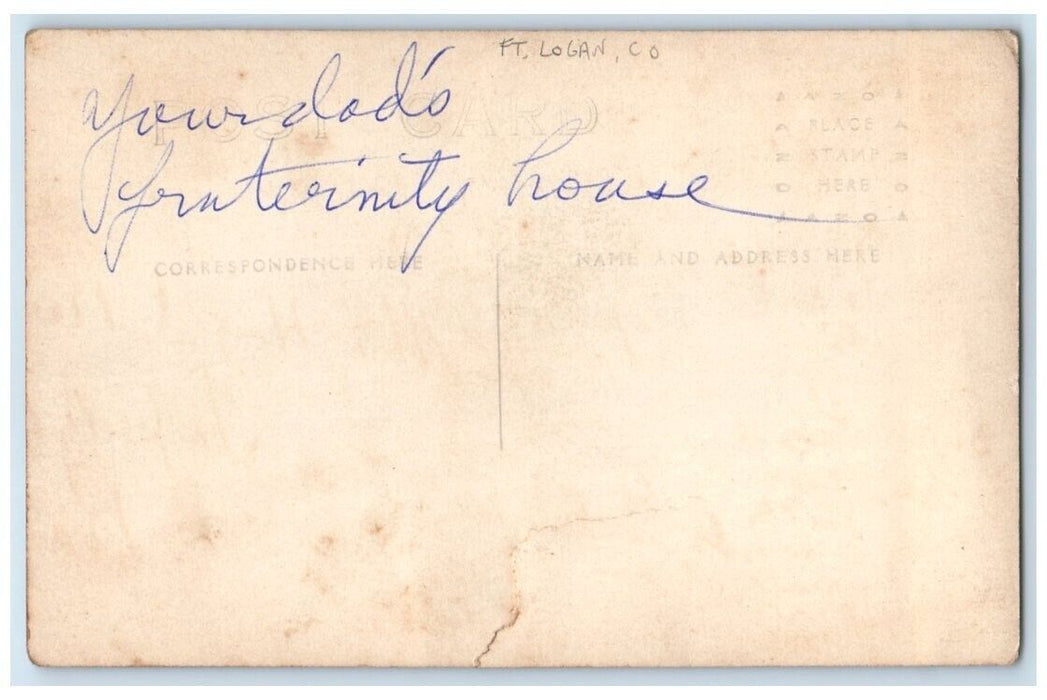 FT. LOGAN, CO
your dad's
fraternity house
POST CARD
AZOA
PLACE
STAMP
HERE
AZOA
CORRESPONDENCE HERE
NAME AND ADDRESS HERE